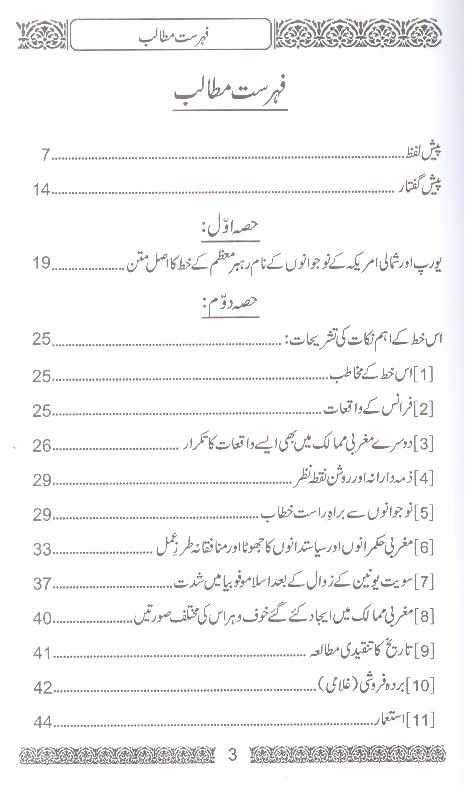 فہرست مطالب
فہرست مطالب
پیش لفظ ........ 7
پیش گفتار ........ 14
حصہ اوّل:
یورپ اور شمالی امریکہ کے نوجوانوں کے نام رہبر معظم کے خط کا اصل متن ........ 19
حصہ دوّم:
اس خط کے اہم نکات کی تشریحات: ........ 25
[1] اس خط کے مخاطب ........ 25
[2] فرانس کے واقعات ........ 25
[3] دوسرے مغربی ممالک میں بھی ایسے واقعات کا تکرار ........ 26
[4] ذمہ دارانہ اور روشن نقطہ نظر ........ 29
[5] نوجوانوں سے براہِ راست خطاب ........ 29
[6] مغربی حکمرانوں اور سیاستدانوں کا جھوٹا اور منافقانہ طرزِ عمل ........ 33
[7] سویت یونین کے زوال کے بعد اسلاموفوبیا میں شدت ........ 37
[8] مغربی ممالک میں ایجاد کئے گئے خوف و ہراس کی مختلف صورتیں ........ 40
[9] تاریخ کا تنقیدی مطالعہ ........ 41
[10] بردہ فروشی (غلامی) ........ 42
[11] استعمار ........ 44
3